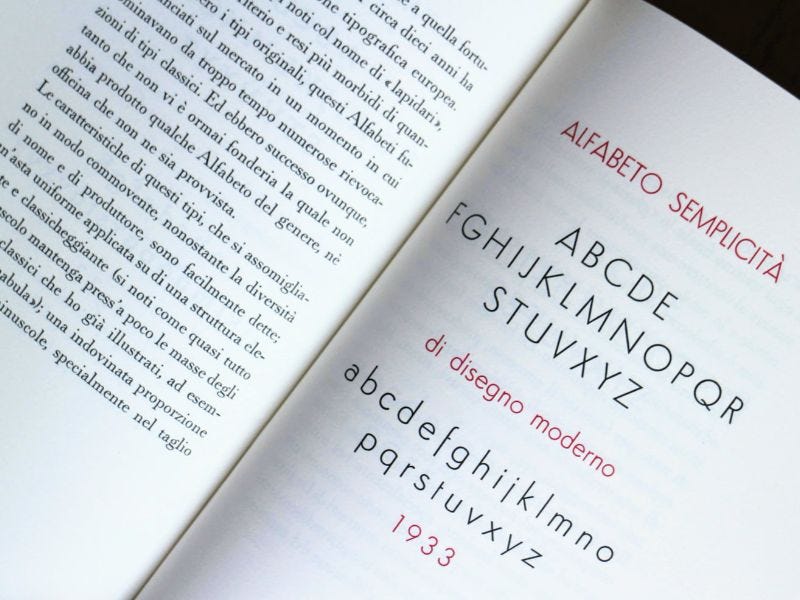 e a quella fortu-
circa dieci anni ha
tipografica europea.
noti col nome di «lapidari»,
i tipi originali, questi Alfabeti fu-
e resi più morbidi di quan-
sul mercato in un momento in cui
da troppo tempo numerose rievoca-
zioni di tipi classici. Ed ebbero successo ovunque,
tanto che non vi è ormai fonderia la quale non
abbia prodotto qualche Alfabeto del genere, nè
officina che non ne sia provvista.
Le caratteristiche di questi tipi, che si assomiglia-
no in modo commovente, nonostante la diversità
di nome e di produttore, sono facilmente dette:
un'asta uniforme applicata su di una struttura ele-
e classicheggiante (si noti come quasi tutto
scolo mantenga press'a poco le masse degli
classici che ho già illustrati, ad esem-
abula»); una indovinata proporzione
inuscole, specialmente nel taglio
ALFABETO SEMPLICITÀ
ABCDE
FGHIJKLMNOPQR
STUVXYZ
di disegno moderno
abcdefghijklmno
pqrstuvxyz
1933